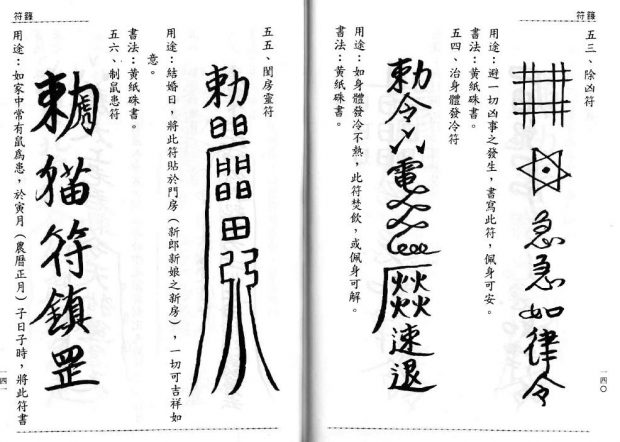 符籙
五三、除凶符
急急如律令
用途：避一切凶事之發生，書寫此符，佩身可安。
書法：黃紙硃書。
五四、治身體發冷符
勅令 電 速退
用途：如身體發冷不熱，此符焚飲，或佩身可解。
書法：黃紙硃書。
一四〇
符籙
五五、閨房靈符
勅
用途：結婚日，將此符貼於門房（新郎新娘之新房），一切可吉祥如
意。
書法：黃紙硃書。
五六、制鼠患符
貓符鎮罡
用途：如家中常有鼠為患，於寅月（農曆正月）子日子時，將此符書
一四